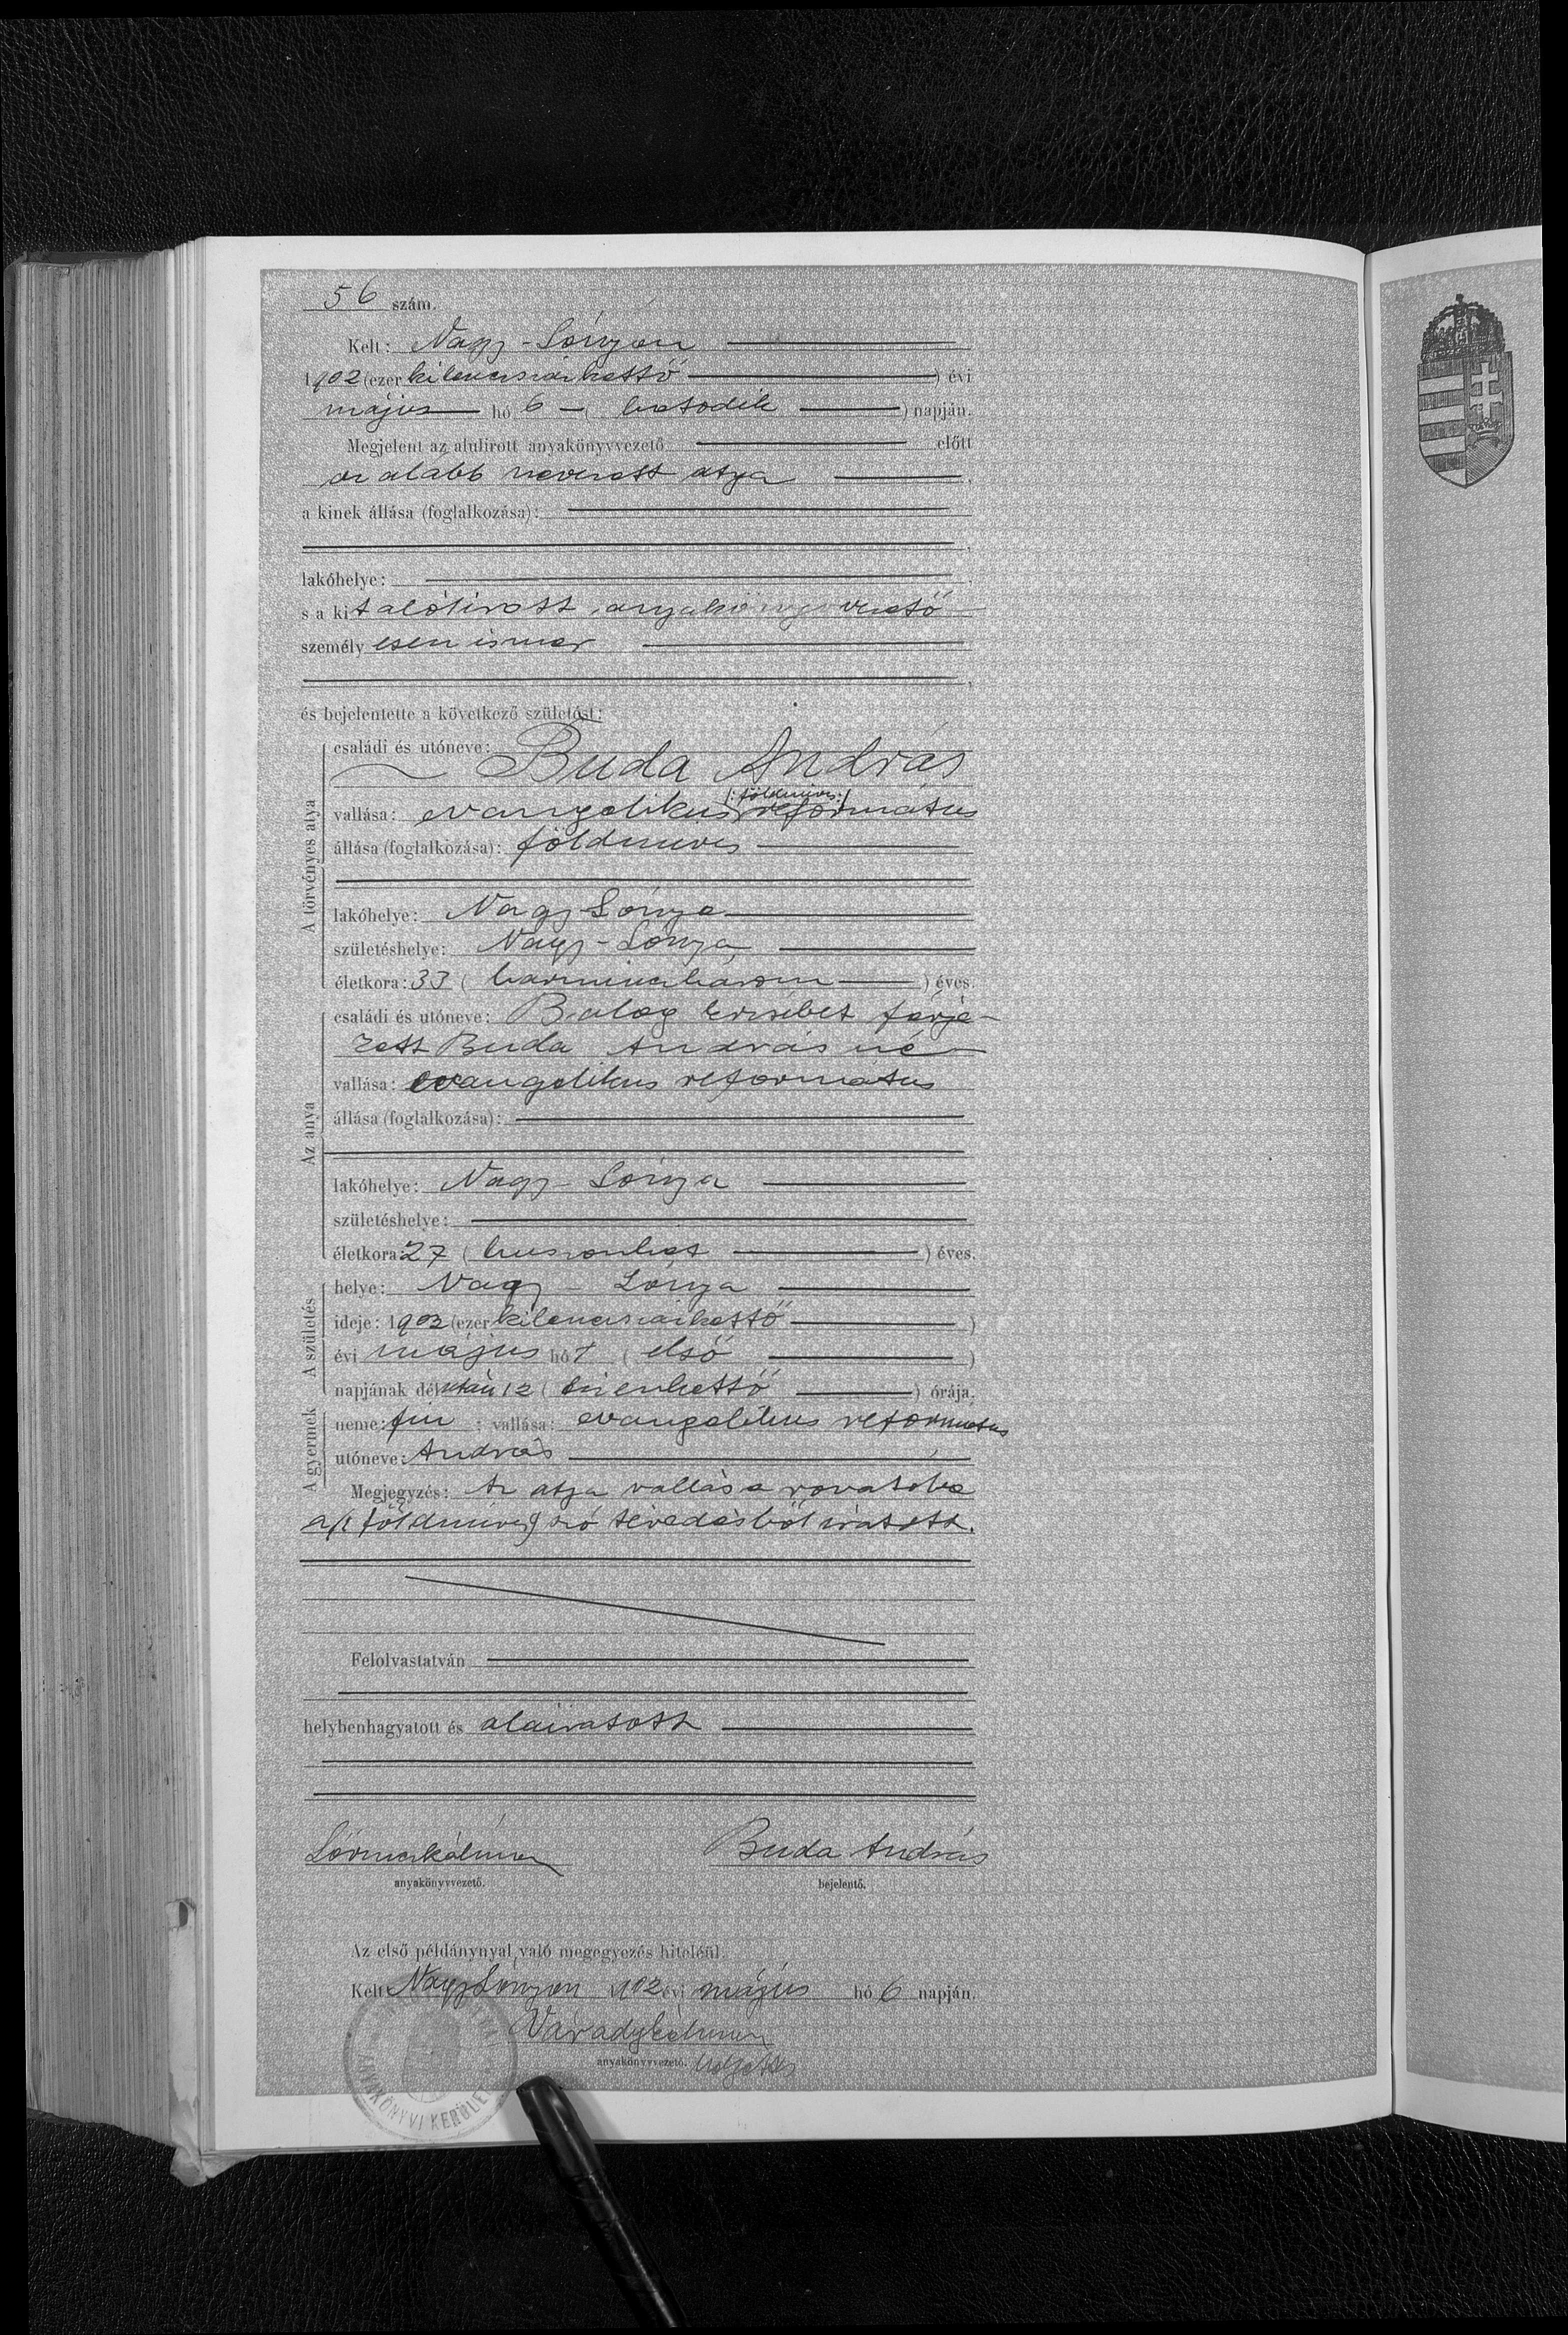 56 szám.
Kelt: Nagy-Lónyan
1902 (ezer kilencszázkettő) évi
május hó 6 (hatodik) napján.
Megjelent az alulirott anyakönyvvezető előtt
az alább nevezett atya
a kinek állása (foglalkozása):
lakóhelye:
s a kit alólirott anyakönyvvezető
személyesen ismer
és bejelentette a következő születést:
A törvényes atya
családi és utóneve:
Buda András
(: földmives :)
vallása: evangelikus református
állása (foglalkozása): földmives
lakóhelye: Nagy-Lónya
születéshelye: Nagy-Lónya
életkora: 33 (harminchárom) éves.
Az anya
családi és utóneve: Balog Erzsébet férje-
zett Buda Andrásné
vallása: evangelikus reformatus
állása (foglalkozása):
lakóhelye: Nagy-Lónya
születéshelye:
életkora: 27 (huszonhét) éves.
A születés
helye: Nagy-Lónya
ideje: 1902 (ezer kilencszázkettő)
évi május hó 1 (első)
napjának délután 12 (tizenkettő) órája.
A gyermek
neme: fiu; vallása: evangelikus református
utóneve: András
Megjegyzés: Az atya vallása rovatába
a (: földmives) szó tévedésből iratott.
Felolvastatván
helybenhagyatott és aláiratott
anyakönyvvezető.
Buda András
bejelentő.
Az első példánynyal való megegyezés hiteléül.
Kelt Nagy Lónyan 1902 évi május hó 6 napján.
Várady Kálmán
anyakönyvvezető. helyettes
ANYAKÖNYVI KERÜLET